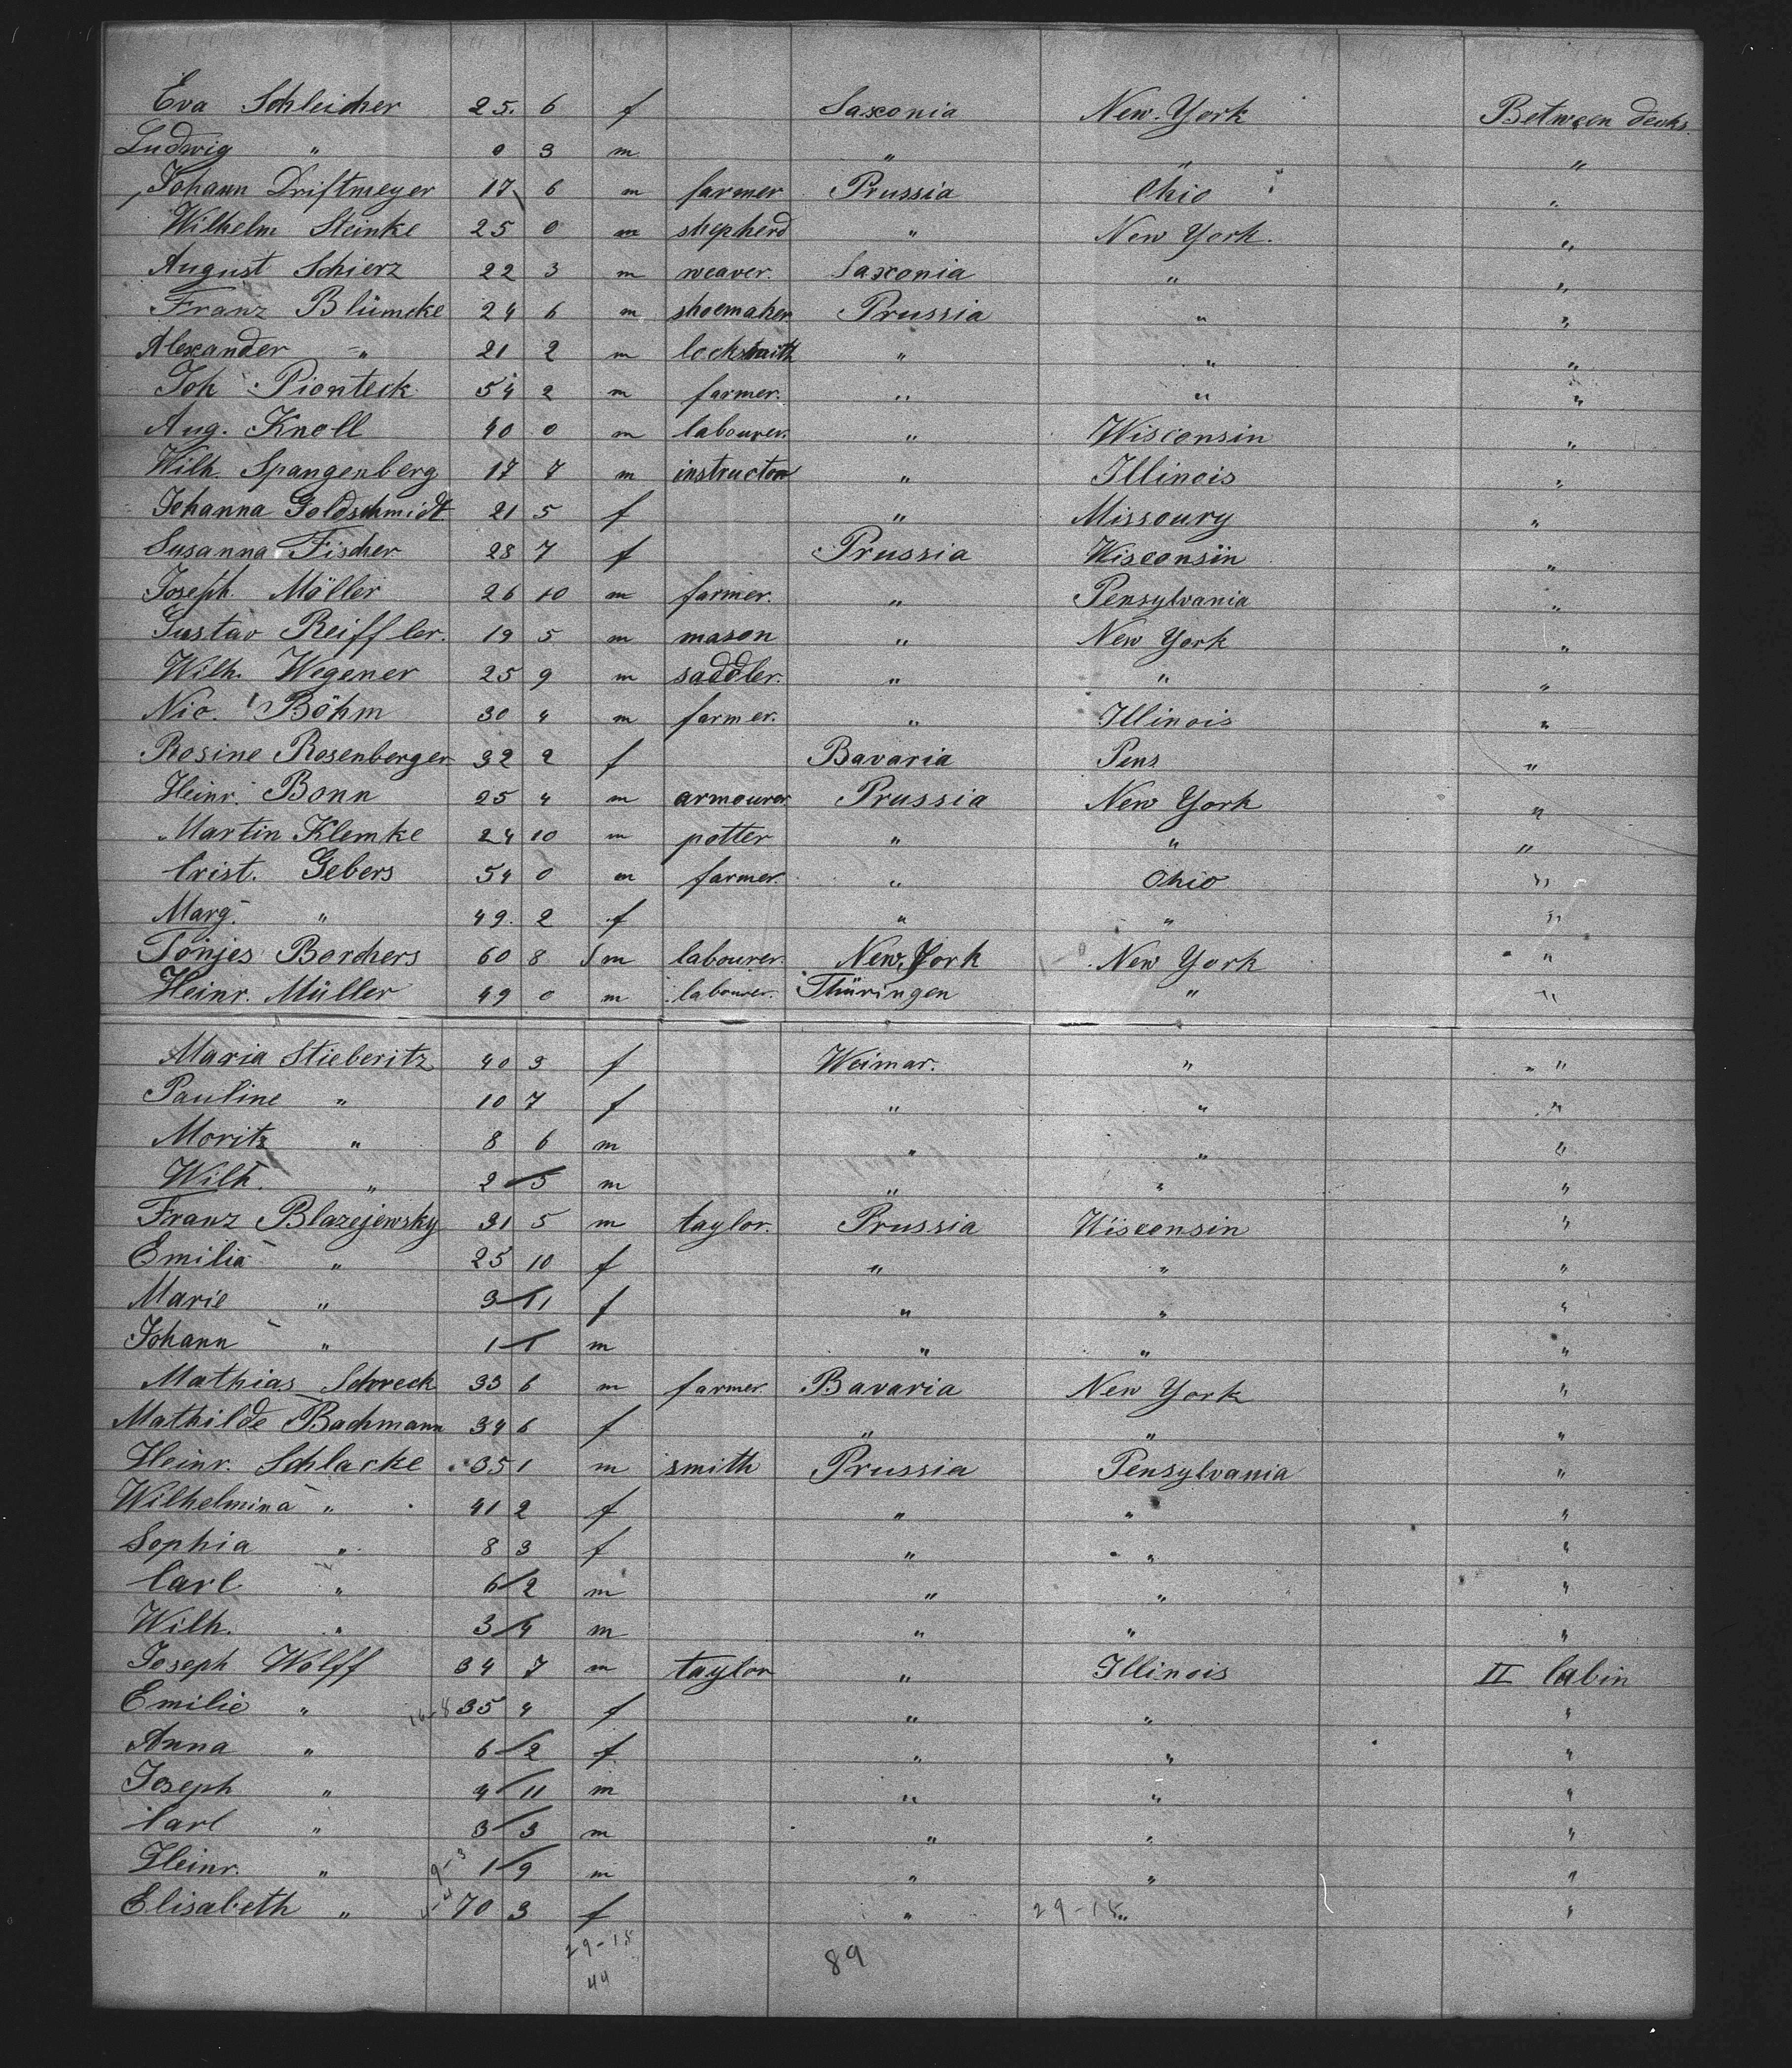 Eva Schleicher 25. 6 f Saxonia New-York Between decks.
Ludwig " 0 3 m " " "
Johann Driftmeyer 17 6 m farmer Prussia Ohio "
Wilhelm Steinke 25 0 m shepherd " New York. "
August Schierz 22 3 m weaver. Saxonia " "
Franz Blümcke 24 6 m shoemaker Prussia " "
Alexander " 21 2 m locksmith " " "
Joh Pionteck 54 2 m farmer. " " "
Aug. Knoll 40 0 m labourer. " Wisconsin "
Wilh. Spangenberg 17 7 m instructor " Illinois "
Johanna Goldschmidt 21 5 f " Missoury "
Susanna Fischer 28 7 f Prussia Wisconsin "
Joseph Möller 26 10 m farmer. " Pensylvania "
Gustav Reiffler. 19 5 m mason " New York "
Wilh. Wegener 25 9 m saddler. " " "
Nic. Böhm 30 4 m farmer. " Illinois "
Rosine Rosenberger 32 2 f Bavaria Pens "
Heinr. Bonn 25 4 m armourer Prussia New York "
Martin Klemke 24 10 m potter " " "
Crist. Gebers 54 0 m farmer. " Ohio "
Marg. " 49. 2 f " " "
Tönjes Borchers 60 8 m labourer. New York New York "
Heinr. Müller 49 0 m labourer. Thüringen " "
Maria Stieberitz 40 3 f Weimar. " "
Pauline " 10 7 f " " "
Moritz " 8 6 m " " "
Wilh. " 2 5 m " " "
Franz Blazejewsky 31 5 m taylor. Prussia Wisconsin "
Emilia " 25 10 f " " "
Marie " 3 11 f " " "
Johann " 1 1 m " " "
Mathias Schreck 33 6 m farmer Bavaria New York "
Mathilde Bachmann 34 6 f " " "
Heinr. Schlacke 35 1 m smith Prussia Pensylvania "
Wilhelmina " 41 2 f " " "
Sophia " 8 3 f " " "
Carl " 6 2 m " " "
Wilh. " 3 4 m " " "
Joseph Wolff 34 7 m taylor " Illinois II Cabin
Emilie " 35 4 f " " "
Anna " 6 2 f " " "
Joseph " 4 11 m " " "
Carl " 3 3 m " " "
Heinr. " 9-3 1 9 m " " "
Elisabeth " 70 3 f " 29-15 " "
29-15
44 89